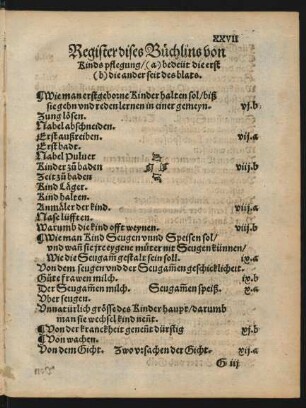 XXVII
Register dises Büchlins von
Kinds pflegung/(a) bedeüt die erst
(b) die ander seit des blats.
¶Wie man erstgeborne Kinder halten sol/biß
sie gehn vnd reden lernen in einer gemeyn. vj.b
Zung lösen.
Nabel abschneiden.
Erst außreiben. vij.a
Erst badt.
Nabel Puluer
Kinder zů baden vij.b
Zeit zů baden
Kind Läger.
Kind halten.
Anmäler der kind. viij.a
Nase lüfften.
Warumb die kind offt weynen. viij.b
¶Wie man Kind Seugen vnnd Speisen sol/
vnd wañ sie jre eygene můtter nit Seugen künnen/
Wie die Seugam̃ gestalt sein soll. ix.a
Von dem seugen vnd der Seugam̃en geschicklicheit.
Güte frawen milch. ix.b
Der Seugam̃en milch. Seugam̃en speiß. x.a
Vber seugen.
Vnnatürlich grösse des Kinder haupt/darumb
man sie wechsel kind neñt.
¶Von der kranckheit geneñt dürstig xj.b
¶Von wachen.
Von dem Gicht. Zwo vrsachen der Gicht. xij.a
G iij